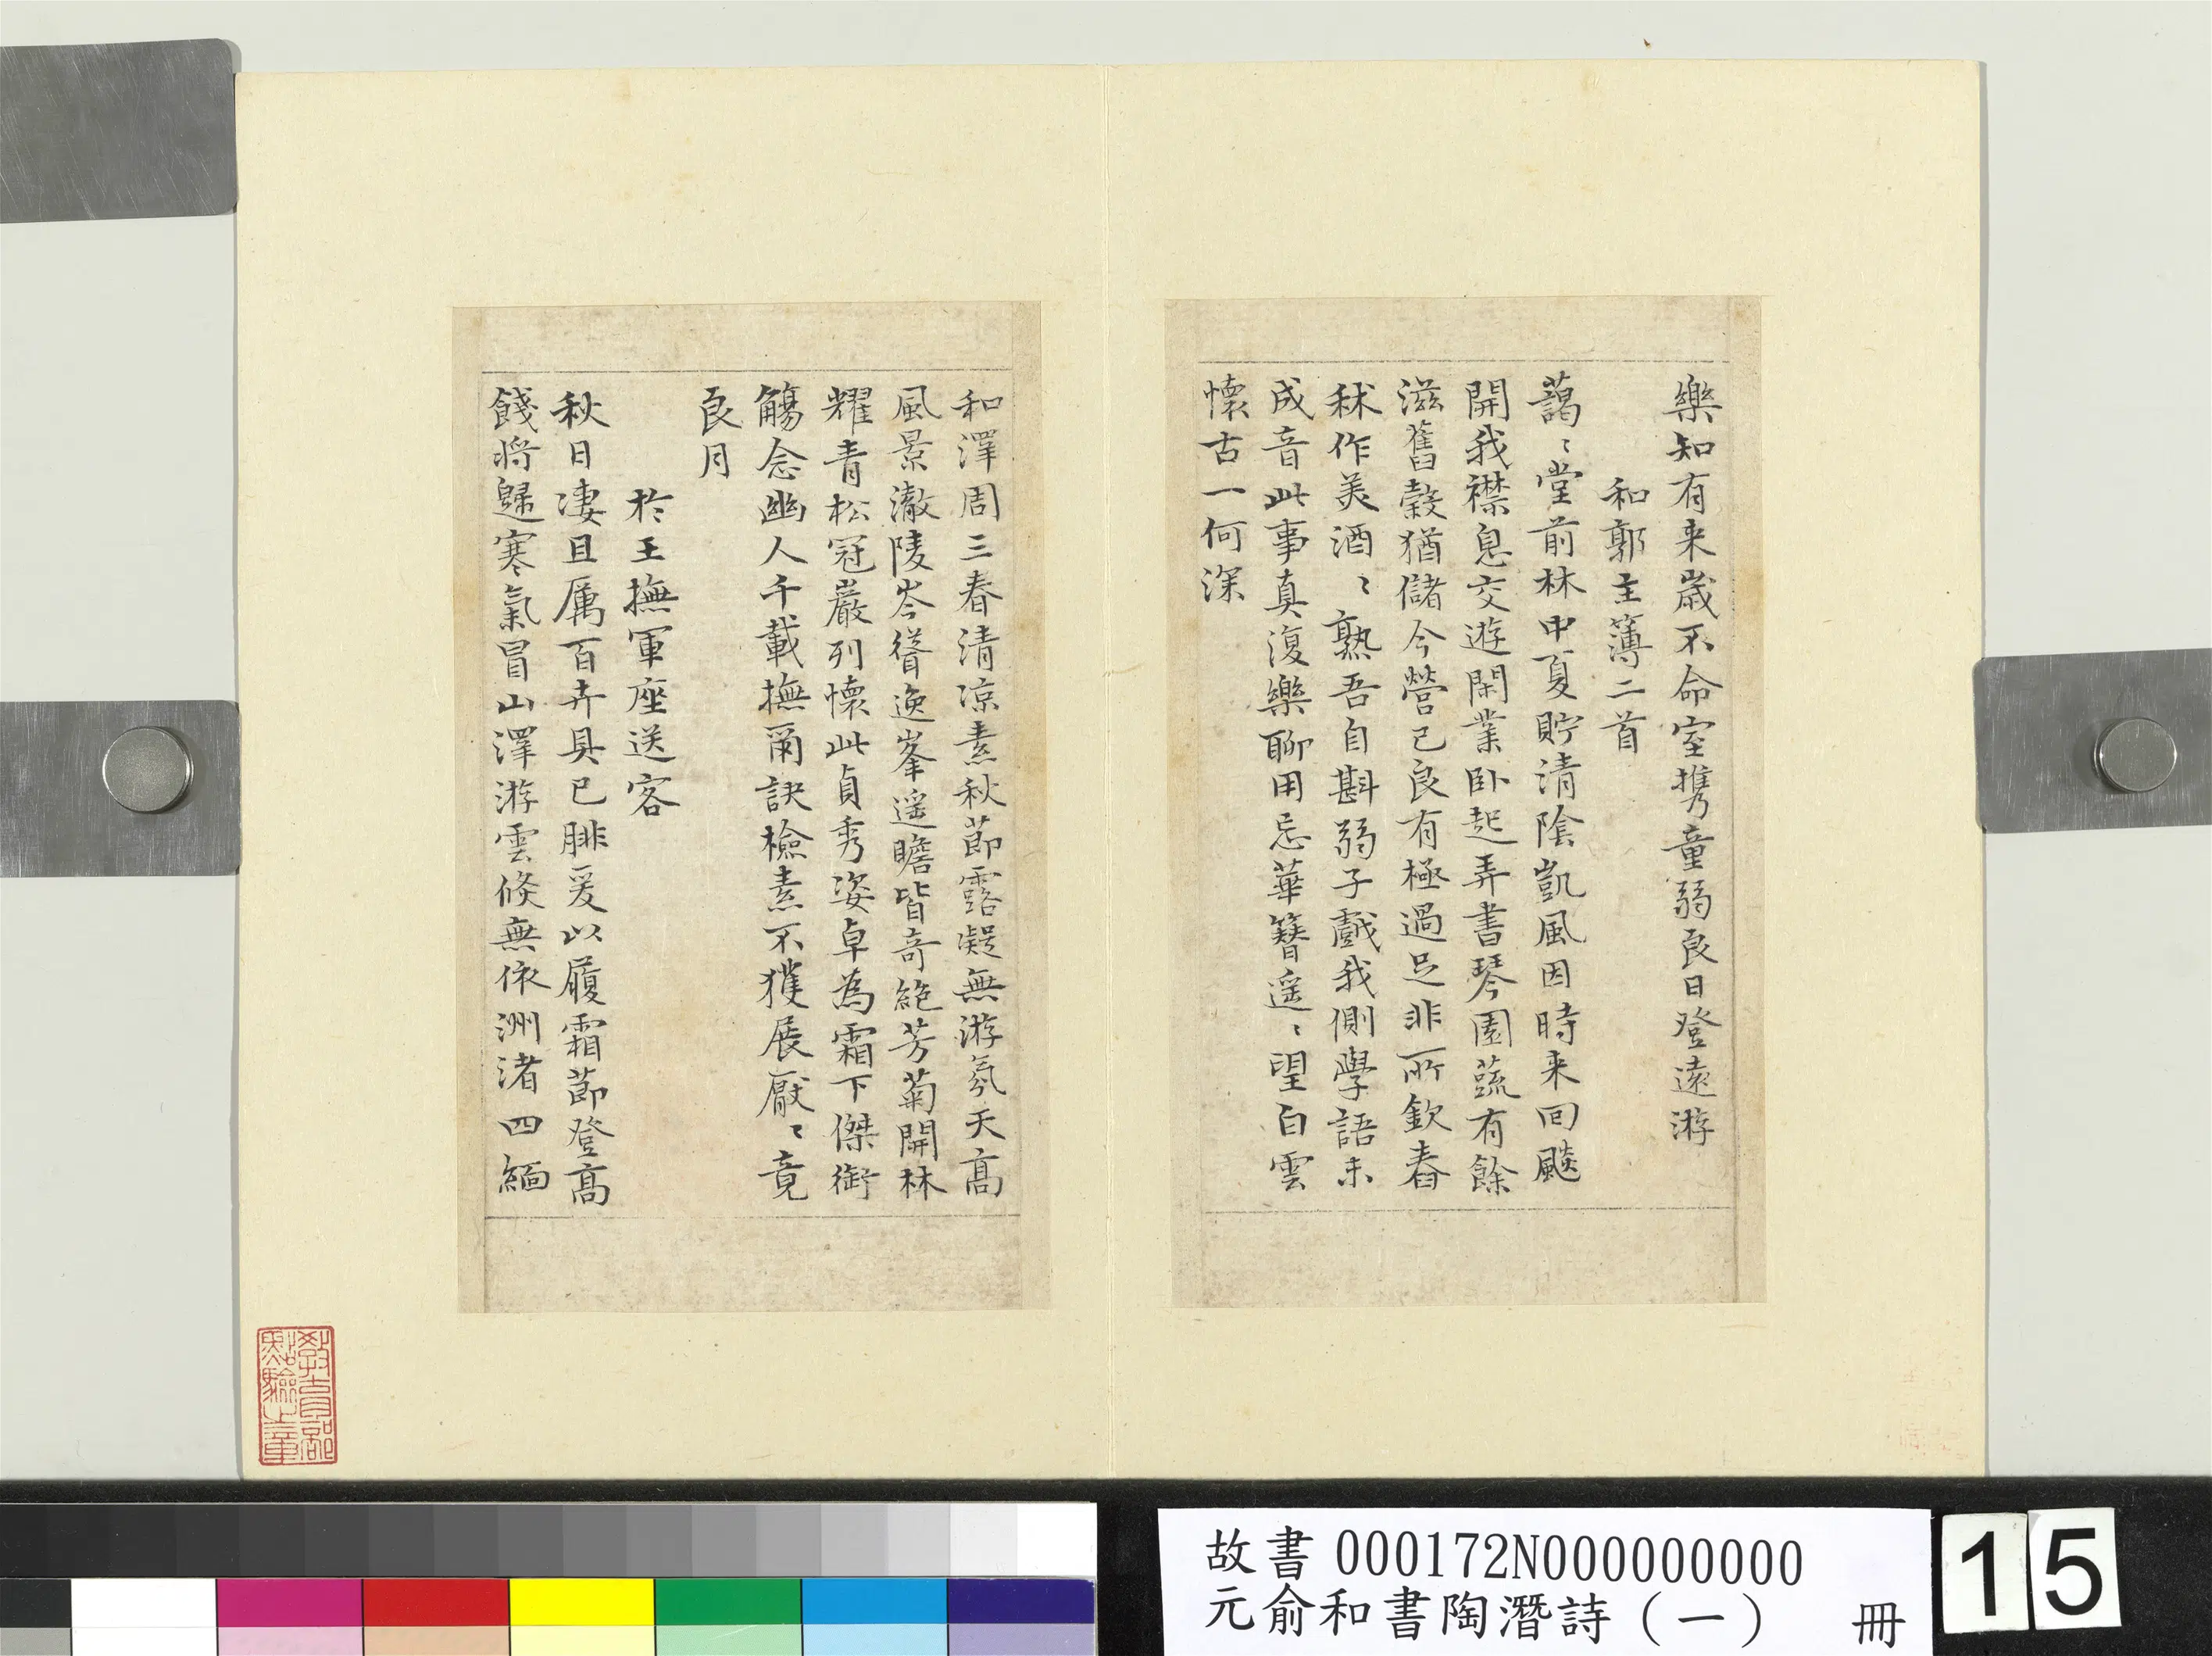 樂知有来歲不命室携童弱良日登遠游
和郭主薄二首
藹〻堂前林中夏貯清隂凱風因時来囘飈
開我襟息交遊閑業卧起弄書琴園蔬有餘
滋舊穀猶儲今營己良有極過足非所欽舂
秫作美酒〻熟吾自斟弱子戲我側學語未
成音此事真復樂聊用忘華簪遥〻望白雲
懷古一何深
和澤周三春清凉素秋莭露凝無游氛天高
風景澈陵岑聳逸峯遥瞻皆奇絶芳菊開林
耀青松冠巖列懷此貞秀姿卓為霜下傑銜
觴念幽人千載撫爾訣檢素不獲展厭〻竟
良月
於王撫軍座送客
秋日凄且厲百卉具已腓爰以履霜莭登高
餞将歸寒氣冒山澤游雲倐無依洲渚四緬
教育部點驗之章
故書 000172N000000000
元俞和書陶潛詩（一） 冊
15